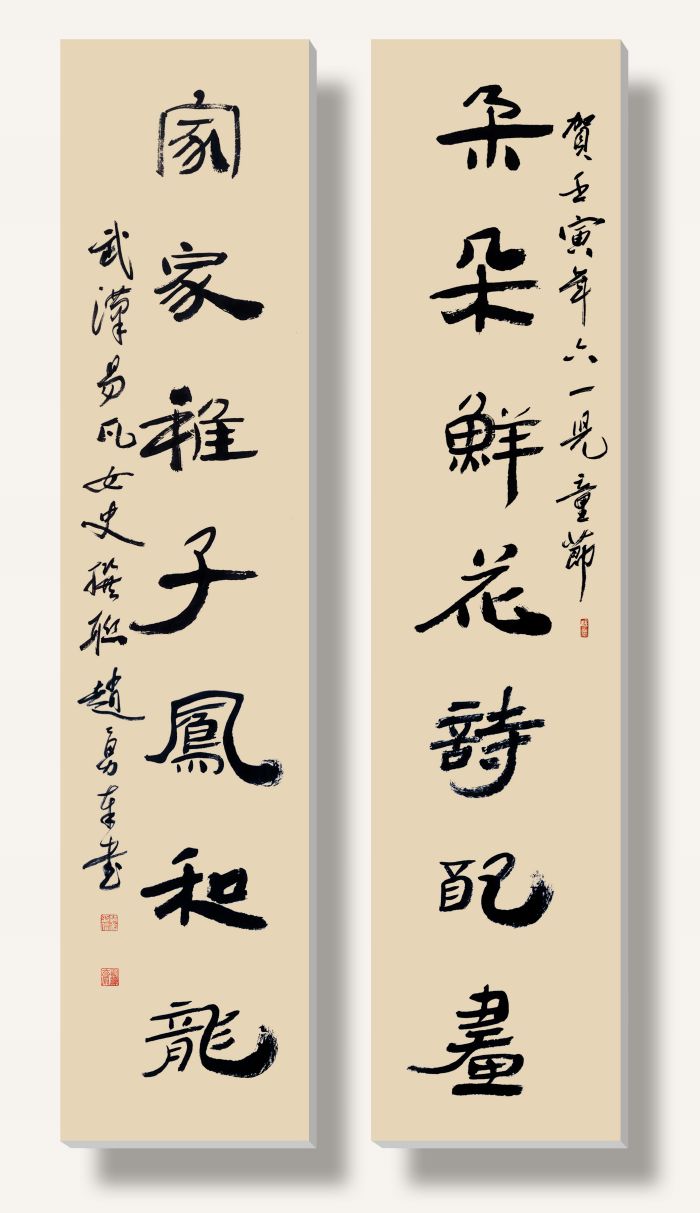 賀壬寅年六一兒童節
朵朵鮮花詩配畫
家家稚子鳳和龍
武漢易凡女史撰聯趙勇奉書